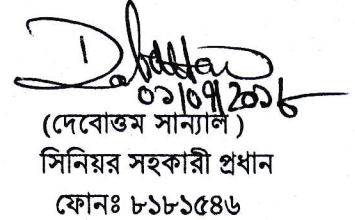 ০১/০৭/২০১৮
(দেবোত্তম সান্যাল )
সিনিয়র সহকারী প্রধান
ফোনঃ ৮১৮১৫৪৬